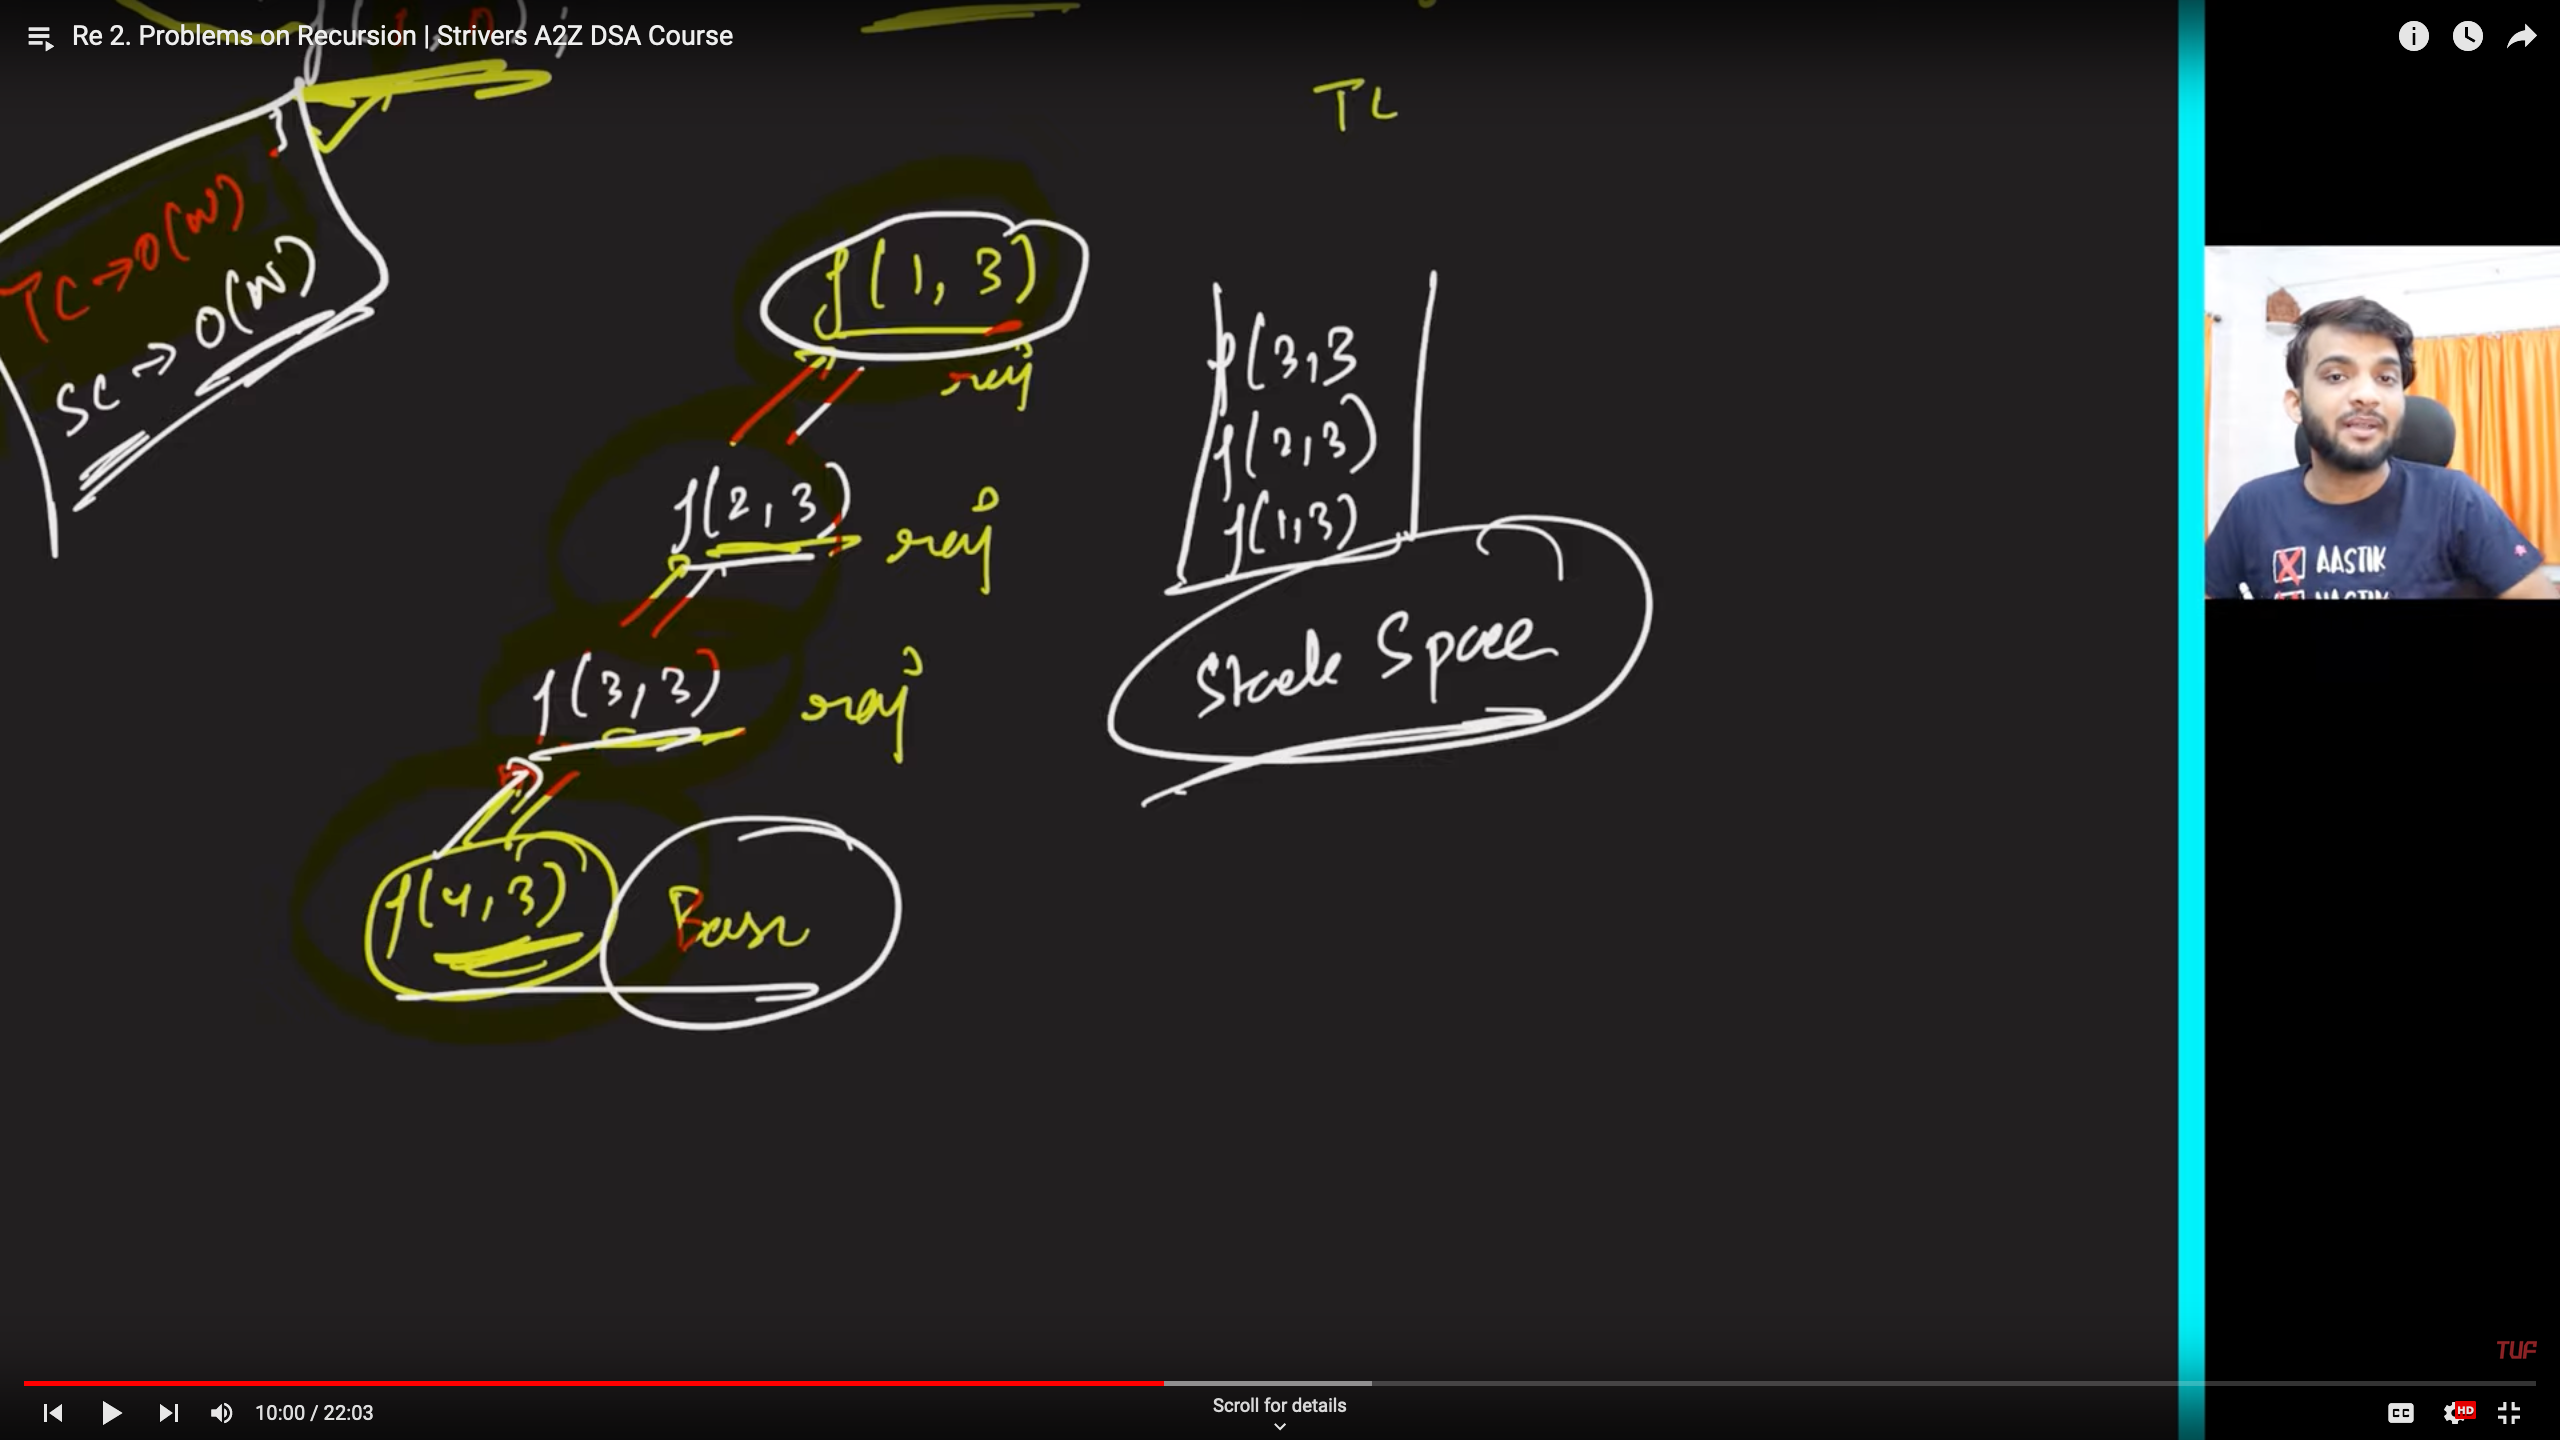 Re 2. Problems on Recursion | Strivers A2Z DSA Course
TC
}
TC → O(N)
SC → O(N)
f(1, 3)
raj
f(2, 3) raj
f(3, 3) raj
f(4, 3) Base
f(3,3
f(2,3)
f(1,3)
Stack Space
AASTIK
TUF
10:00 / 22:03
Scroll for details
CC
HD